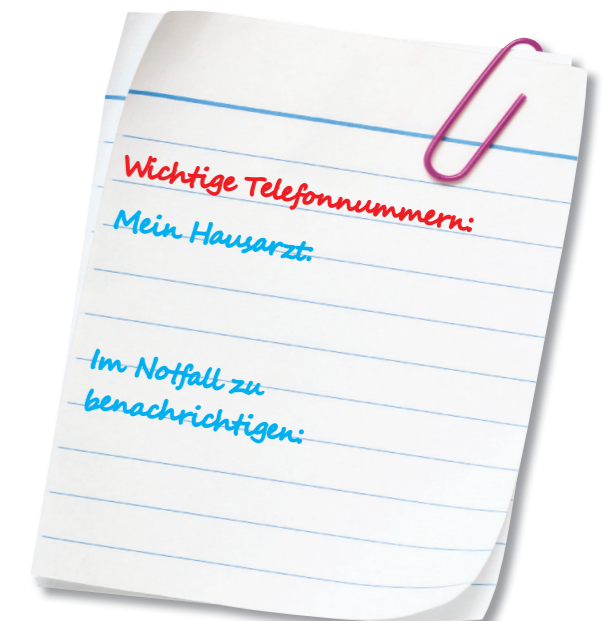 Wichtige Telefonnummern:
Mein Hausarzt:
Im Notfall zu
benachrichtigen: